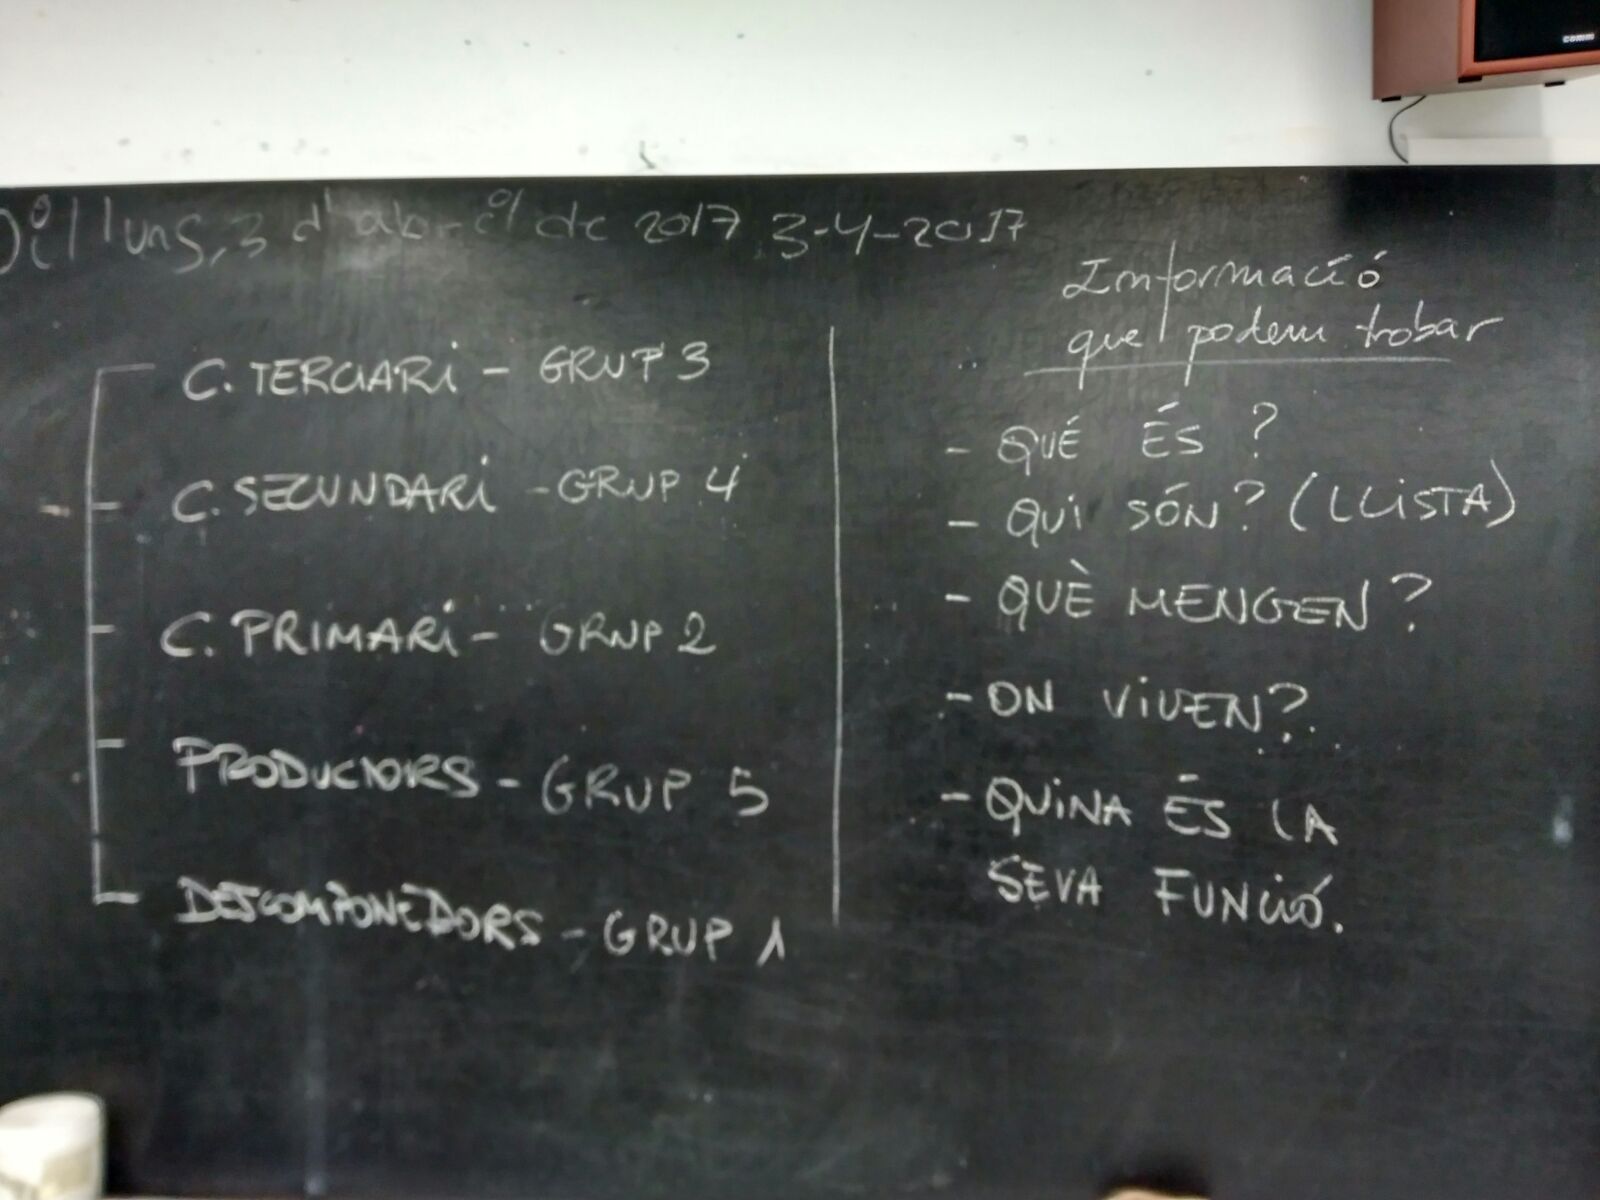 Dilluns, 3 d'abril de 2017 3-4-2017
C. TERCIARI - GRUP 3
C. SECUNDARI - GRUP 4
C. PRIMARI - GRUP 2
PRODUCTORS - GRUP 5
DESCOMPONEDORS - GRUP 1
Informació
que podem trobar
- QUÉ ÉS?
- QUI SÓN? (LLISTA)
- QUÈ MENGEN?
- ON VIUEN?
- QUINA ÉS LA
SEVA FUNCIÓ.